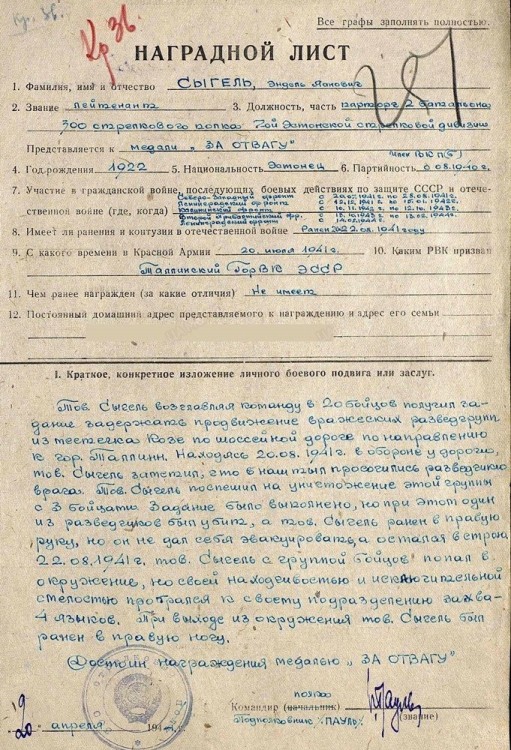 Кр. 3в.
Кр 3в.
Все графы заполнять полностью.
НАГРАДНОЙ ЛИСТ
1. Фамилия, имя и отчество СЫГЕЛЬ, Эндель Яанович
2. Звание Лейтенант 3. Должность, часть парторг 2 батальона
300 стрелкового полка 7ой Эстонской стрелковой дивизии
Представляется к медали „ЗА ОТВАГУ"
член ВКП(б)
4. Год рождения 1922 5. Национальность Эстонец 6. Партийность с 08.1940 г.
7. Участие в гражданской войне, последующих боевых действиях по защите СССР и отече-
ственной войне (где, когда)
Северо-Западный фронт
Ленинградский фронт
Калининский фронт
Второй Прибалтийский фр.
Ленинградский фронт
8. Имеет ли ранения и контузии в отечественной войне Ранен 22.08.1941 году
9. С какого времени в Красной Армии 20 июля 1941 г. 10. Каким РВК призван
Таллинский ГорВК ЭССР
11. Чем ранее награжден (за какие отличия) Не имеет
12. Постоянный домашний адрес представляемого к награждению и адрес его семьи
I. Краткое, конкретное изложение личного боевого подвига или заслуг.
Тов. Сыгель возглавляя команду в 20 бойцов получил за-
дание задержать продвижение вражеских разведгрупп
из местечка Козе по шоссейной дороге по направлению
к гор. Таллинн. Находясь 20.08.1941г. в обороне у дороги,
тов. Сыгель заметил, что в наш тыл просочились разведчики
врага. Тов. Сыгель поспешил на уничтожение этой группы
с 3 бойцами. Задание было выполнено, но при этом один
из разведчиков был убит, а тов. Сыгель ранен в правую
руку, но он не дал себя эвакуировать, а остался в строю
22.08.1941г. тов. Сыгель с группой бойцов попал в
окружение, но своей находчивостью и исключительной
смелостью пробрался к своему подразделению захва-
4 языков. При выходе из окружения тов. Сыгель был
ранен в правую ногу.
Достоин награждения медалью „ЗА ОТВАГУ"
полка
Командир (начальник)
Подполковник /ПАУЛЬ/ (звание)
20 апреля 194